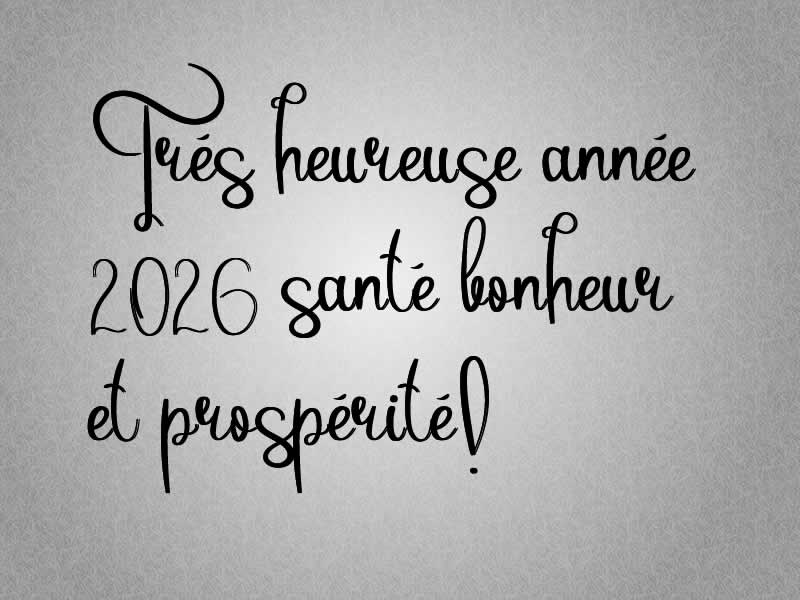 Trés heureuse année
2026 santé bonheur
et prospérité!